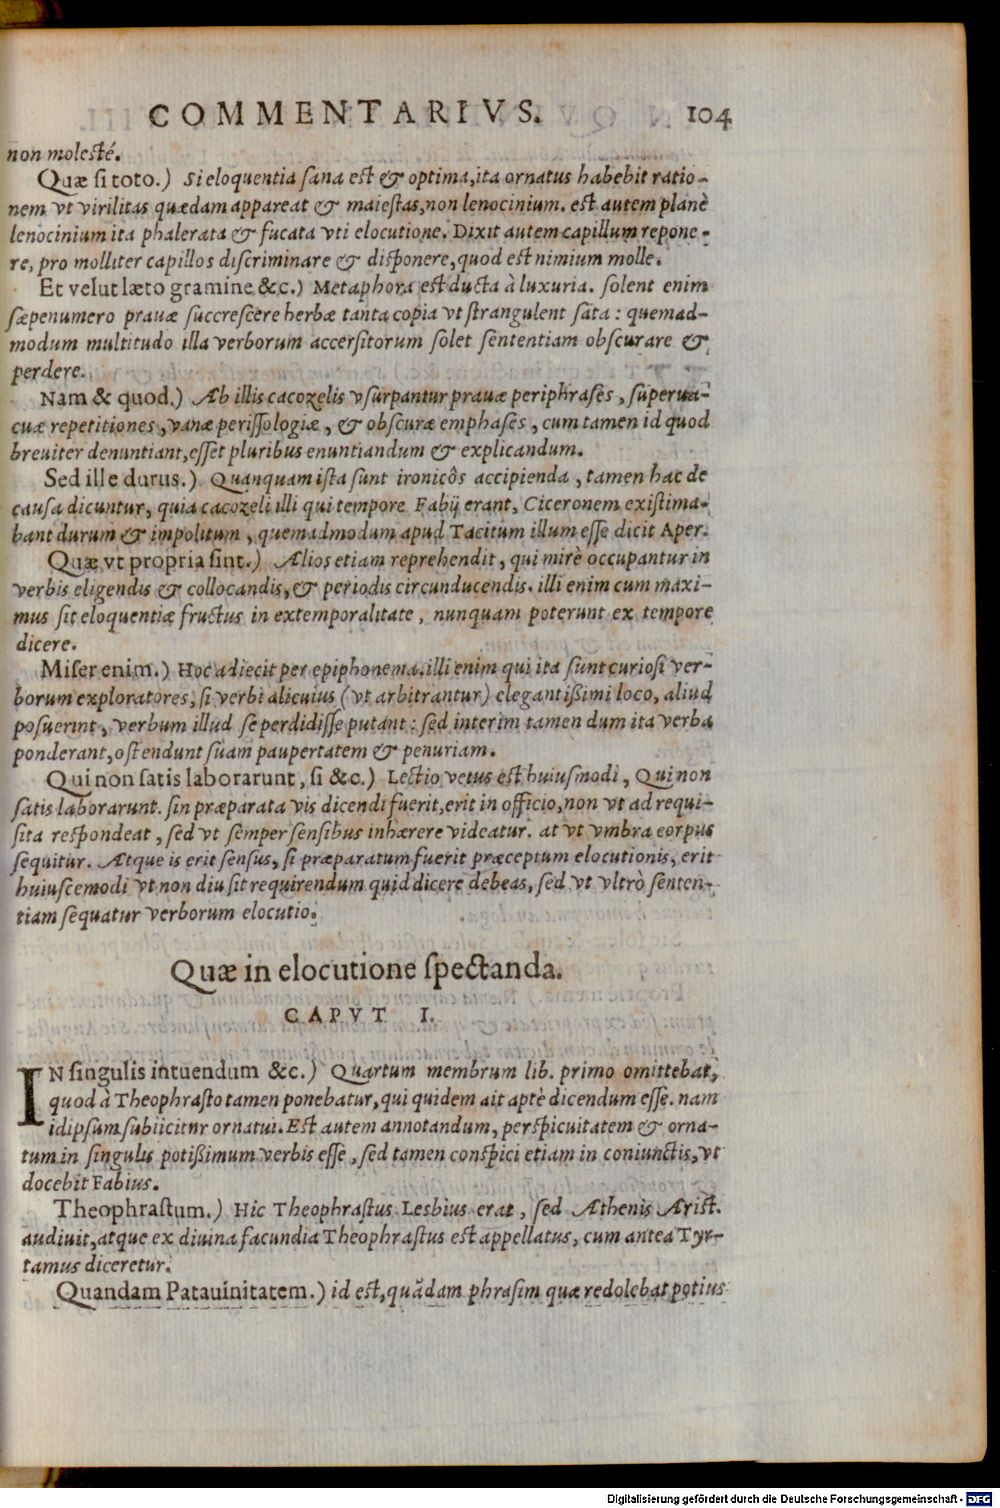 COMMENTARIVS. 104
non molesté.
Quæ si toto.) Si eloquentia sana est & optima, ita ornatus habebit ratio-
nem vt virilitas quædam appareat & maiestas, non lenocinium. est autem planè
lenocinium ita phalerata & fucata vti elocutione. Dixit autem capillum repone-
re, pro molliter capillos discriminare & disponere, quod est nimium molle.
Et velut læto gramine &c.) Metaphora est ducta à luxuria. solent enim
sæpenumero prauæ succrescere herbæ tanta copia vt strangulent sata: quemad-
modum multitudo illa verborum accersitorum solet sententiam obscurare &
perdere.
Nam & quod.) Ab illis cacozelis vsurpantur prauæ periphrases, superua-
cuæ repetitiones, vanæ perissologiæ, & obscuræ emphases, cum tamen id quod
breuiter denuntiant, esset pluribus enuntiandum & explicandum.
Sed ille durus.) Quanquam ista sunt ironicôs accipienda, tamen hac de
causa dicuntur, quia cacozeli illi qui tempore Fabij erant, Ciceronem existima-
bant durum & impolitum, quemadmodum apud Tacitum illum esse dicit Aper.
Quæ vt propria sint.) Alios etiam reprehendit, qui mirè occupantur in
verbis eligendis & collocandis, & periodis circunducendis. illi enim cum maxi-
mus sit eloquentiæ fructus in extemporalitate, nunquam poterunt ex tempore
dicere.
Miser enim.) Hoc adiecit per epiphonema. illi enim qui ita sunt curiosi ver-
borum exploratores, si verbi alicuius (vt arbitrantur) elegantissimi loco, aliud
posuerint, verbum illud se perdidisse putant: sed interim tamen dum ita verba
ponderant, ostendunt suam paupertatem & penuriam.
Qui non satis laborarunt, si &c.) Lectio vetus est huiusmodi, Qui non
satis laborarunt. sin præparata vis dicendi fuerit, erit in officio, non vt ad requi-
sita respondeat, sed vt semper sensibus inhærere videatur. at vt vmbra corpus
sequitur. Atque is erit sensus, si præparatum fuerit præceptum elocutionis, erit
huiuscemodi vt non diu sit requirendum quid dicere debeas, sed vt vltrò senten-
tiam sequatur verborum elocutio.
Quæ in elocutione spectanda.
CAPVT I.
IN singulis intuendum &c.) Quartum membrum lib. primo omittebat,
quod à Theophrasto tamen ponebatur, qui quidem ait aptè dicendum esse. nam
idipsum subiicitur ornatui. Est autem annotandum, perspicuitatem & orna-
tum in singulis potissimum verbis esse, sed tamen conspici etiam in coniunctis, vt
docebit Fabius.
Theophrastum.) Hic Theophrastus Lesbius erat, sed Athenis Arist.
audiuit, atque ex diuina facundia Theophrastus est appellatus, cum antea Tyr-
tamus diceretur.
Quandam Patauinitatem.) id est, quãdam phrasim quæ redolebat potius
Digitalisierung gefördert durch die Deutsche Forschungsgemeinschaft - DFG